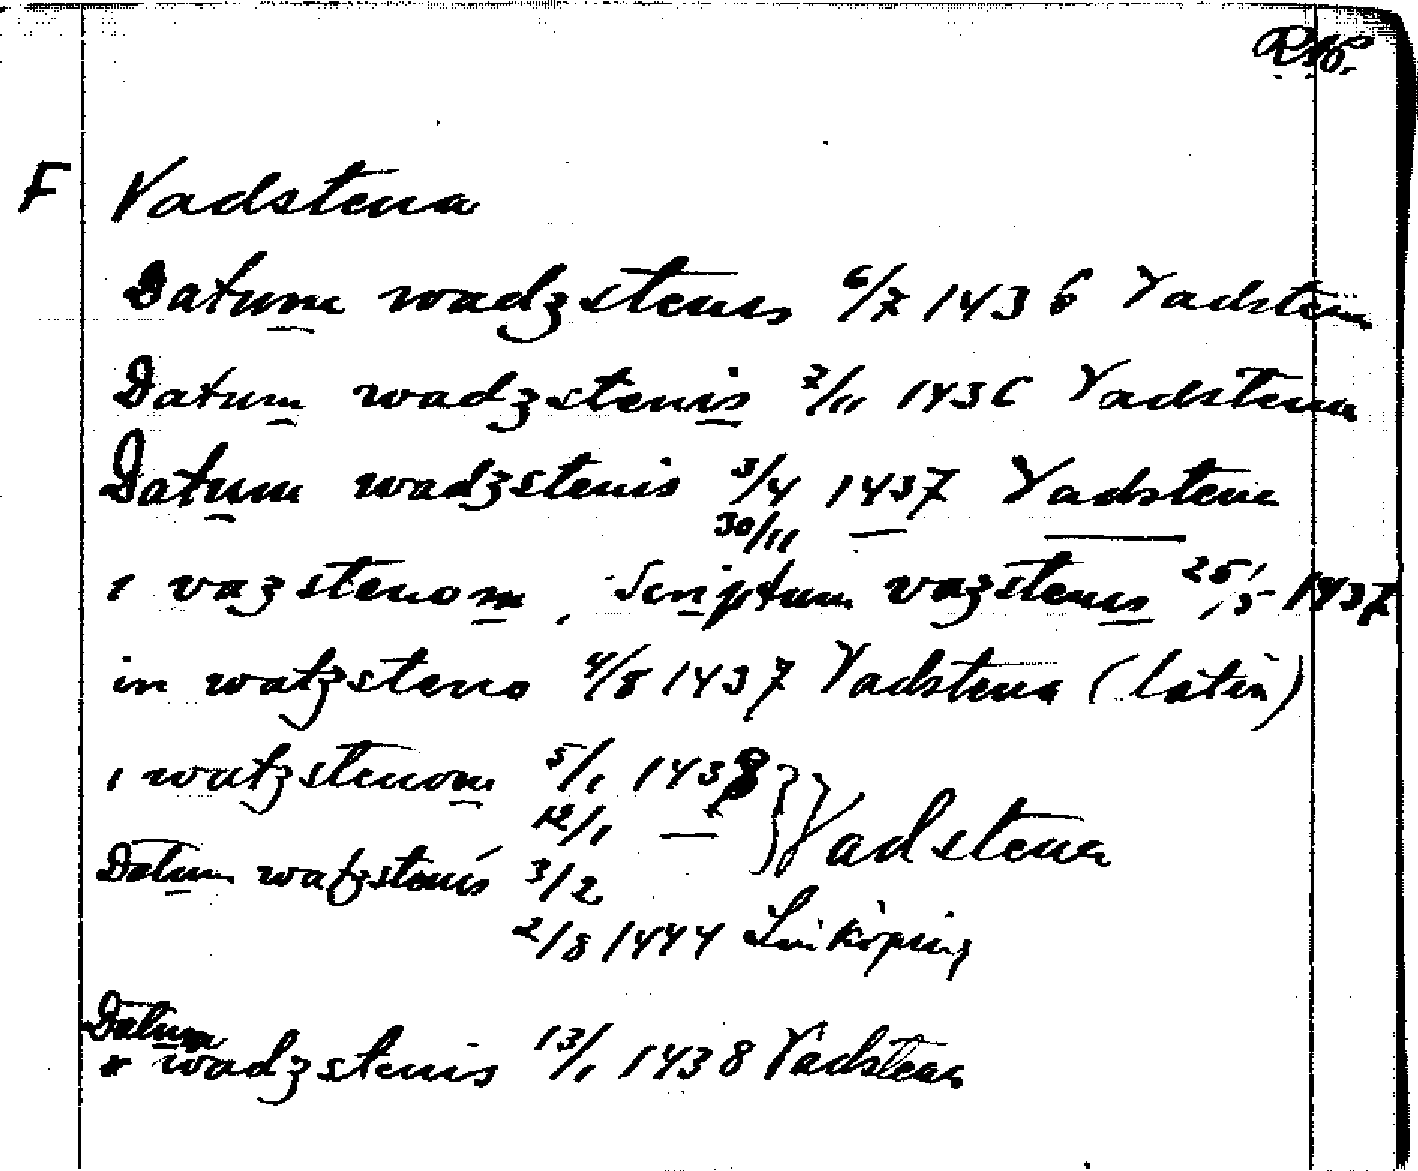 RAp.
F Vadstena
Datum wadzstenis 6/7 1436 Vadstena
Datum wadzstenis 2/11 1436 Vadstena
Datum wadzstenis 3/4 1437 Vadstena
30/11 —
i vazstenom, Scriptum vazstenis 25/5 1437
in watzsteno 4/8 1437 Vadstena (latin)
i watzstenom 5/1 1438
12/1 — Vadstena
Datum watzstenis 3/2
2/8 1444 Linköping
Datum
wadzstenis 13/1 1438 Vadstena